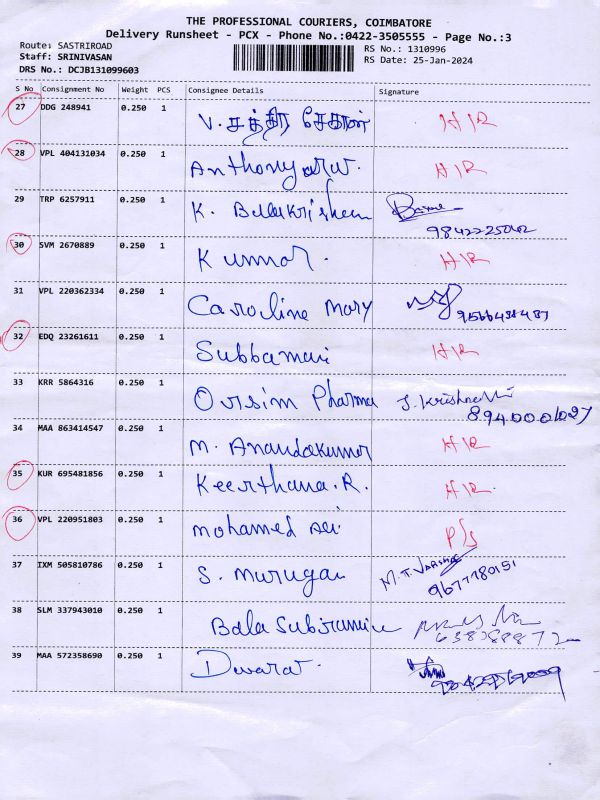 THE PROFESSIONAL COURIERS, COIMBATORE
Delivery Runsheet - PCX - Phone No.:0422-3505555 - Page No.:3
Route: SASTRIROAD RS No.: 1310996
Staff: SRINIVASAN RS Date: 25-Jan-2024
DRS No.: DCJB131099603
S No Consignment No Weight PCS Consignee Details Signature
27 DDG 248941 0.250 1 V. சந்திர சேகரன் HIR
28 VPL 404131034 0.250 1 Anthonyaraj. HIR
29 TRP 6257911 0.250 1 K. Balakrishnan
30 SVM 2670889 0.250 1 Kumar. HIR
31 VPL 220362334 0.250 1 Caroline Mary
32 EDQ 23261611 0.250 1 Subbamani HIR
33 KRR 5864316 0.250 1 Oursim Pharma J. Krishnalli
8940001027
34 MAA 863414547 0.250 1 M. Anandakumar HIR
35 KUR 695481856 0.250 1 Keerthana.R. HIR
36 VPL 220951803 0.250 1 mohamed Ali P/S
37 IXM 505810786 0.250 1 S. Murugan M.T.
9677780151
38 SLM 337943010 0.250 1 Bala Subiramani
39 MAA 572358690 0.250 1